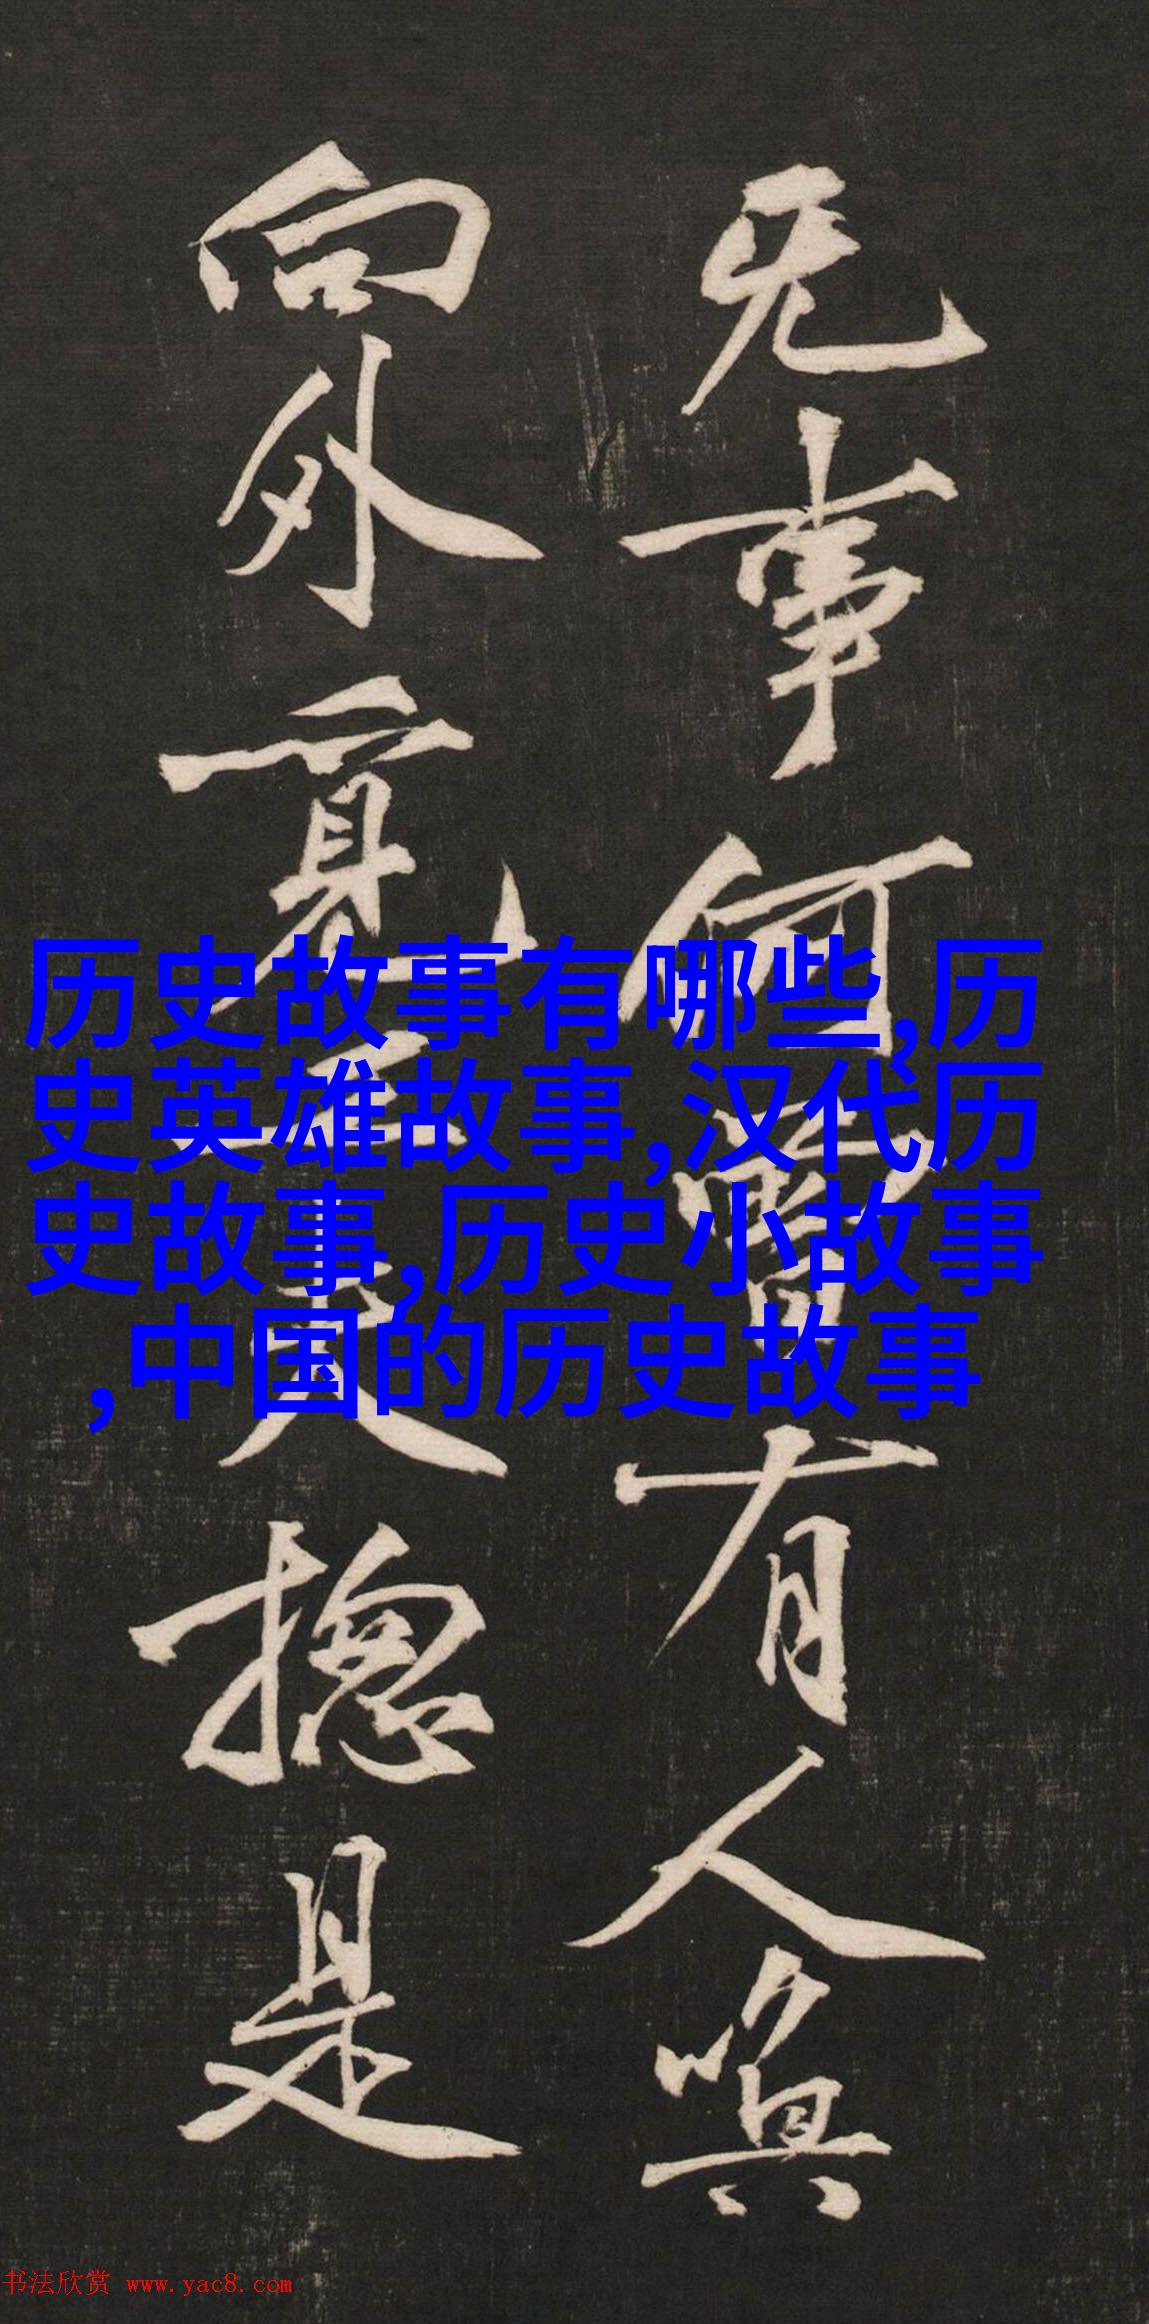 无事何有人
向外覔工夫揔是
历史故事有哪些,历
史英雄故事,汉代历
史故事,历史小故事
,中国的历史故事
书法欣赏 www.yac8.com